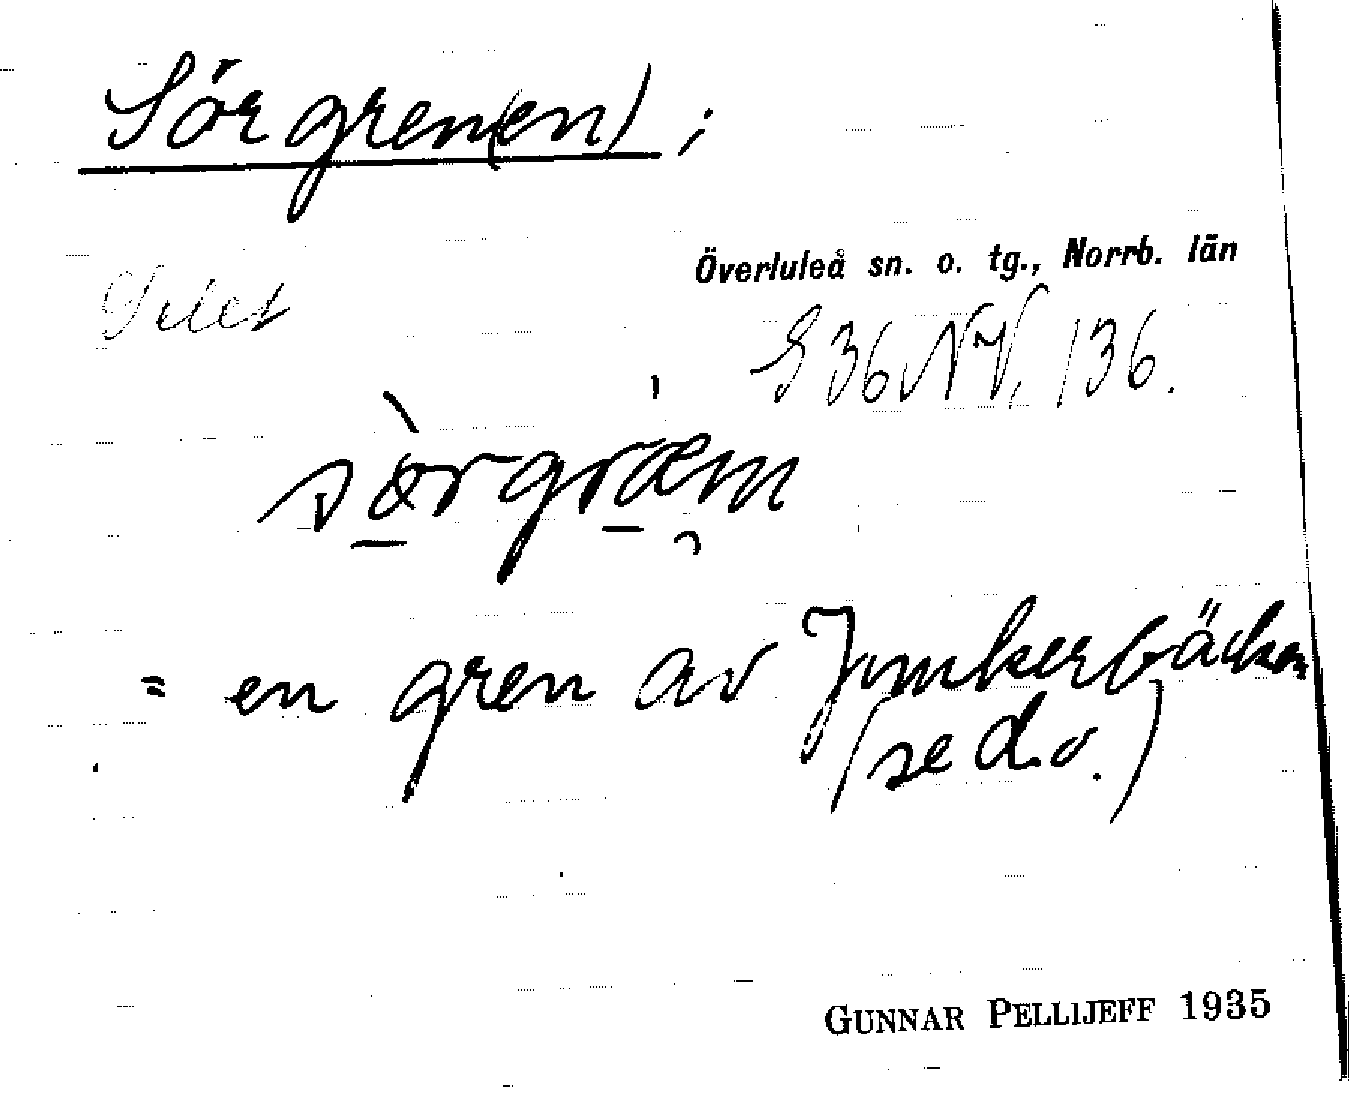 Sörgren(en);
Överluleå sn. o. tg., Norrb. län
Selet
S 36 NV, 136.
sòrgræn
= en gren av Junkerbäcken
(se d.o.)
GUNNAR PELLIJEFF 1935